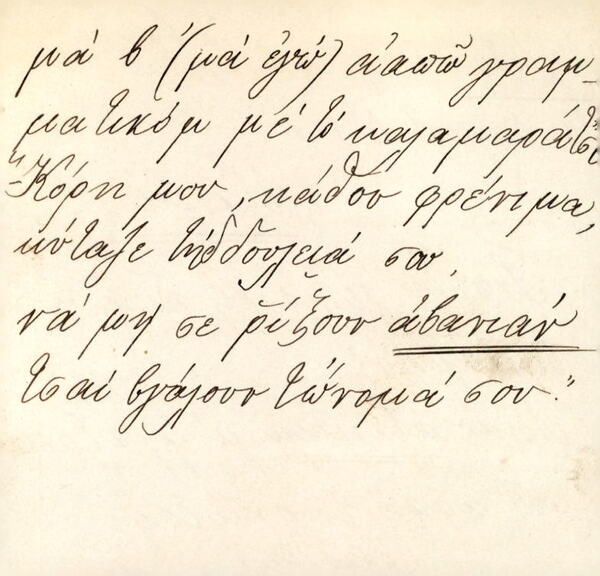 μά β (μά ἐγώ) ἀαπῶ γραμ-
ματικόμ μέ τό καλαμαράτσι
"Κόρη μου, κάθου φρένιμα,
κύταξε τήδδουλειά σου,
νά μή σε ρίξουν ἀβανιάν
τσαί βγάλουν τὤνομά σου."